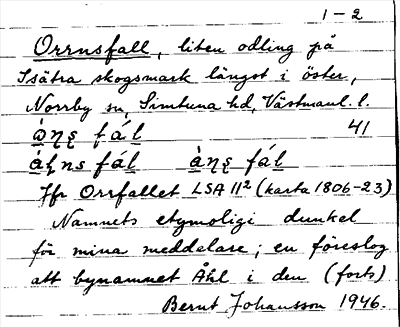 1 – 2
Orrnsfall, liten odling på
Isätra skogsmark längst i öster,
Norrby sn, Simtuna hd, Västmanl. l.
41
Jfr Orrfallet LSA 11² (karta 1806-23)
Namnets etymoligi dunkel
för mina meddelare; en föreslog
att bynamnet Åhl i den (forts)
Bernt Johansson 1946.